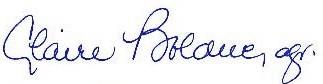 Claire Bolduc, agr.